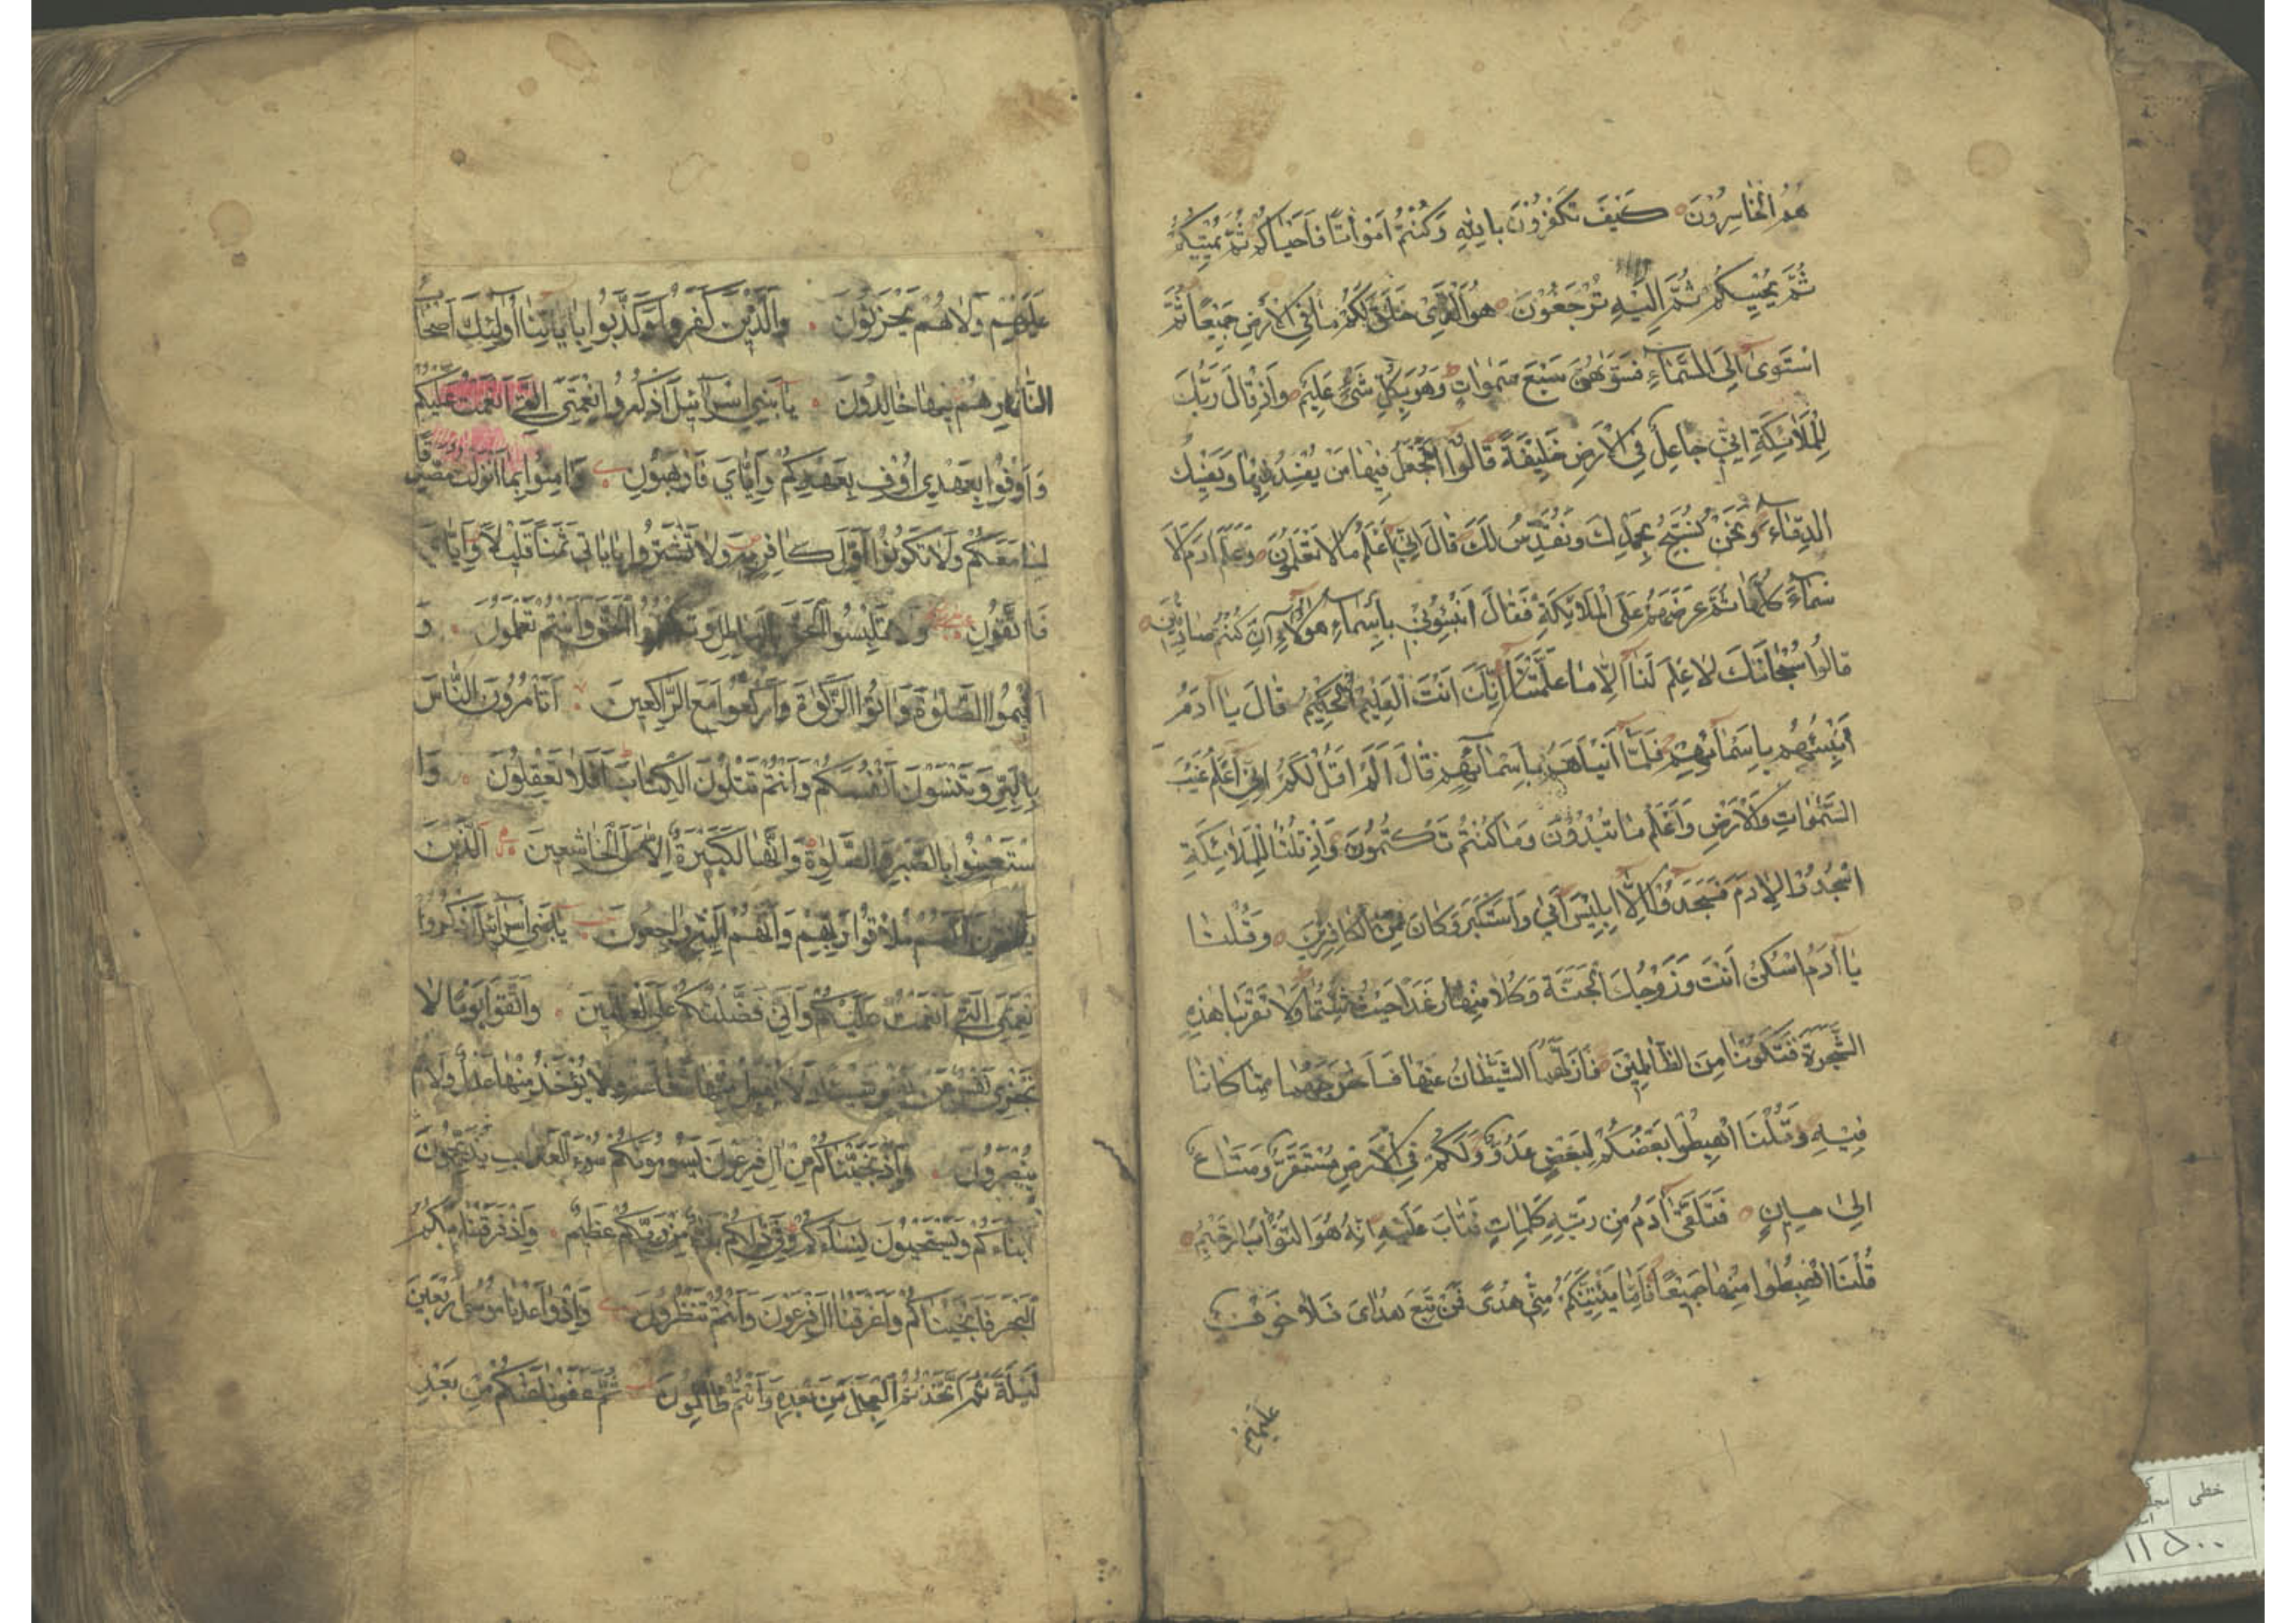 هُمُ الْخَاسِرُونَ كَيْفَ تَكْفُرُونَ بِاللّٰهِ وَكُنْتُمْ اَمْوَاتًا فَاَحْيَاكُمْ ثُمَّ يُمِيتُكُمْ
ثُمَّ يُحْيِيكُمْ ثُمَّ اِلَيْهِ تُرْجَعُونَ هُوَ الَّذِى خَلَقَ لَكُمْ مَا فِى الْاَرْضِ جَمِيعًا ثُمَّ
اسْتَوىٰ اِلَى السَّمَآءِ فَسَوّٰهُنَّ سَبْعَ سَمٰوَاتٍ وَهُوَ بِكُلِّ شَىْءٍ عَلِيمٌ وَاِذْ قَالَ رَبُّكَ
لِلْمَلَائِكَةِ اِنِّى جَاعِلٌ فِى الْاَرْضِ خَلِيفَةً قَالُوا اَتَجْعَلُ فِيهَا مَنْ يُفْسِدُ فِيهَا وَيَسْفِكُ
الدِّمَاءَ وَنَحْنُ نُسَبِّحُ بِحَمْدِكَ وَنُقَدِّسُ لَكَ قَالَ اِنِّى اَعْلَمُ مَا لَا تَعْلَمُونَ وَعَلَّمَ اٰدَمَ الْاَ
سْمَآءَ كُلَّهَا ثُمَّ عَرَضَهُمْ عَلَى الْمَلَائِكَةِ فَقَالَ اَنْبِئُونِى بِاَسْمَاءِ هٰؤُلَآءِ اِنْ كُنْتُمْ صَادِقِينَ
قَالُوا سُبْحَانَكَ لَا عِلْمَ لَنَا اِلَّا مَا عَلَّمْتَنَا اِنَّكَ اَنْتَ الْعَلِيمُ الْحَكِيمُ قَالَ يَا اٰدَمُ
اَنْبِئْهُمْ بِاَسْمَآئِهِمْ فَلَمَّا اَنْبَاَهُمْ بِاَسْمَآئِهِمْ قَالَ اَلَمْ اَقُلْ لَكُمْ اِنِّى اَعْلَمُ غَيْبَ
السَّمٰوَاتِ وَالْاَرْضِ وَاَعْلَمُ مَا تُبْدُونَ وَمَا كُنْتُمْ تَكْتُمُونَ وَاِذْ قُلْنَا لِلْمَلَائِكَةِ
اسْجُدُوا لِاٰدَمَ فَسَجَدُوا اِلَّا اِبْلِيسَ اَبىٰ وَاسْتَكْبَرَ وَكَانَ مِنَ الْكَافِرِينَ وَقُلْنَا
يَا اٰدَمُ اسْكُنْ اَنْتَ وَزَوْجُكَ الْجَنَّةَ وَكُلَا مِنْهَا رَغَدًا حَيْثُ شِئْتُمَا وَلَا تَقْرَبَا هٰذِهِ
الشَّجَرَةَ فَتَكُونَا مِنَ الظَّالِمِينَ فَاَزَلَّهُمَا الشَّيْطَانُ عَنْهَا فَاَخْرَجَهُمَا مِمَّا كَانَا
فِيهِ وَقُلْنَا اهْبِطُوا بَعْضُكُمْ لِبَعْضٍ عَدُوٌّ وَلَكُمْ فِى الْاَرْضِ مُسْتَقَرٌّ وَمَتَاعٌ
اِلىٰ حِينٍ فَتَلَقّىٰ اٰدَمُ مِنْ رَبِّهِ كَلِمَاتٍ فَتَابَ عَلَيْهِ اِنَّهُ هُوَ التَّوَّابُ الرَّحِيمُ
قُلْنَا اهْبِطُوا مِنْهَا جَمِيعًا فَاِمَّا يَاْتِيَنَّكُمْ مِنِّى هُدًى فَمَنْ تَبِعَ هُدَاىَ فَلَا خَوْفٌ
عَلَيْهِمْ
عَلَيْهِمْ وَلَا هُمْ يَحْزَنُونَ وَالَّذِينَ كَفَرُوا وَكَذَّبُوا بِاٰيَاتِنَا اُولٰئِكَ اَصْحَابُ
النَّارِ هُمْ فِيهَا خَالِدُونَ يَا بَنِى اِسْرَآئِيلَ اذْكُرُوا نِعْمَتِىَ الَّتِى اَنْعَمْتُ عَلَيْكُمْ
وَاَوْفُوا بِعَهْدِى اُوفِ بِعَهْدِكُمْ وَاِيَّاىَ فَارْهَبُونِ وَاٰمِنُوا بِمَا اَنْزَلْتُ مُصَدِّقًا
لِمَا مَعَكُمْ وَلَا تَكُونُوا اَوَّلَ كَافِرٍ بِهِ وَلَا تَشْتَرُوا بِاٰيَاتِى ثَمَنًا قَلِيلًا وَاِيَّاىَ
فَاتَّقُونِ وَلَا تَلْبِسُوا الْحَقَّ بِالْبَاطِلِ وَتَكْتُمُوا الْحَقَّ وَاَنْتُمْ تَعْلَمُونَ وَ
اَقِيمُوا الصَّلٰوةَ وَاٰتُوا الزَّكٰوةَ وَارْكَعُوا مَعَ الرَّاكِعِينَ اَتَاْمُرُونَ النَّاسَ
بِالْبِرِّ وَتَنْسَوْنَ اَنْفُسَكُمْ وَاَنْتُمْ تَتْلُونَ الْكِتَابَ اَفَلَا تَعْقِلُونَ وَا
سْتَعِينُوا بِالصَّبْرِ وَالصَّلٰوةِ وَاِنَّهَا لَكَبِيرَةٌ اِلَّا عَلَى الْخَاشِعِينَ اَلَّذِينَ
يَظُنُّونَ اَنَّهُمْ مُلَاقُوا رَبِّهِمْ وَاَنَّهُمْ اِلَيْهِ رَاجِعُونَ يَا بَنِى اِسْرَآئِيلَ اذْكُرُوا
نِعْمَتِىَ الَّتِى اَنْعَمْتُ عَلَيْكُمْ وَاَنِّى فَضَّلْتُكُمْ عَلَى الْعَالَمِينَ وَاتَّقُوا يَوْمًا لَا
تَجْزِى نَفْسٌ عَنْ نَفْسٍ شَيْئًا وَلَا يُقْبَلُ مِنْهَا شَفَاعَةٌ وَلَا يُؤْخَذُ مِنْهَا عَدْلٌ وَلَا هُمْ
يُنْصَرُونَ وَاِذْ نَجَّيْنَاكُمْ مِنْ اٰلِ فِرْعَوْنَ يَسُومُونَكُمْ سُوءَ الْعَذَابِ يُذَبِّحُونَ
اَبْنَاءَكُمْ وَيَسْتَحْيُونَ نِسَاءَكُمْ وَفِى ذٰلِكُمْ بَلَاءٌ مِنْ رَبِّكُمْ عَظِيمٌ وَاِذْ فَرَقْنَا بِكُمُ
الْبَحْرَ فَاَنْجَيْنَاكُمْ وَاَغْرَقْنَا اٰلَ فِرْعَوْنَ وَاَنْتُمْ تَنْظُرُونَ وَاِذْ وَاعَدْنَا مُوسىٰ اَرْبَعِينَ
لَيْلَةً ثُمَّ اتَّخَذْتُمُ الْعِجْلَ مِنْ بَعْدِهِ وَاَنْتُمْ ظَالِمُونَ ثُمَّ عَفَوْنَا عَنْكُمْ مِنْ بَعْدِ
خطى
١١٥٠٠